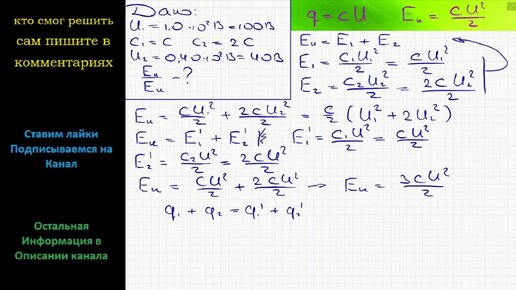 кто смог решить
сам пишите в
комментариях
Ставим лайки
Подписываемся на
Канал
Остальная
Информация в
Описании канала
Дано:
U₁ = 1.0·10²В = 100В
C₁ = C C₂ = 2C
U₂ = 0,40·10²В = 40В
Eн/Eк - ?
q = cU Eн = cU²/2
Eн = E₁ + E₂
E₁ = c₁U₁²/2 = cU₁²/2
E₂ = c₂U₂²/2 = 2cU₂²/2
Eн = cU₁²/2 + 2cU₂²/2 = c/2 (U₁² + 2U₂²)
Eк = E₁' + E₂' E₁' = c₁U²/2 = cU²/2
E₂' = c₂U²/2 = 2cU²/2
Eк = cU²/2 + 2cU²/2 → Eк = 3cU²/2
q₁ + q₂ = q₁' + q₂'